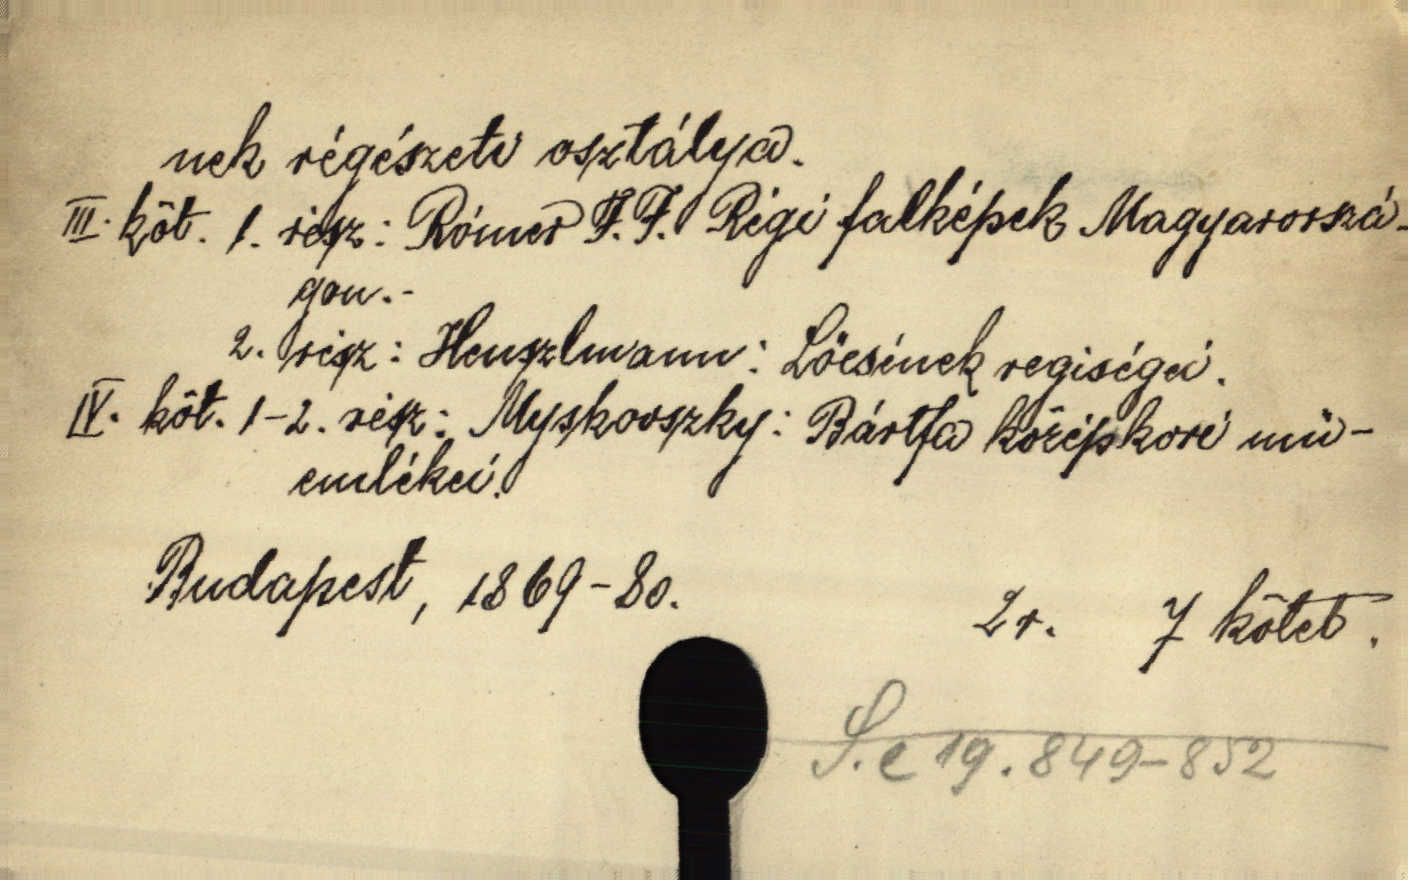 nek régészeti osztálya.
III. köt. 1. rész: Rómer F. F. Régi falképek Magyarorszá-
gon.-
2. rész: Henszlmann: Lőcsének regiségei.
IV. köt. 1-2. rész: Myskovszky: Bártfa középkori mü-
emlékei.
Budapest, 1869-80.
2r. 7 kötet.
S. e 19. 849-852